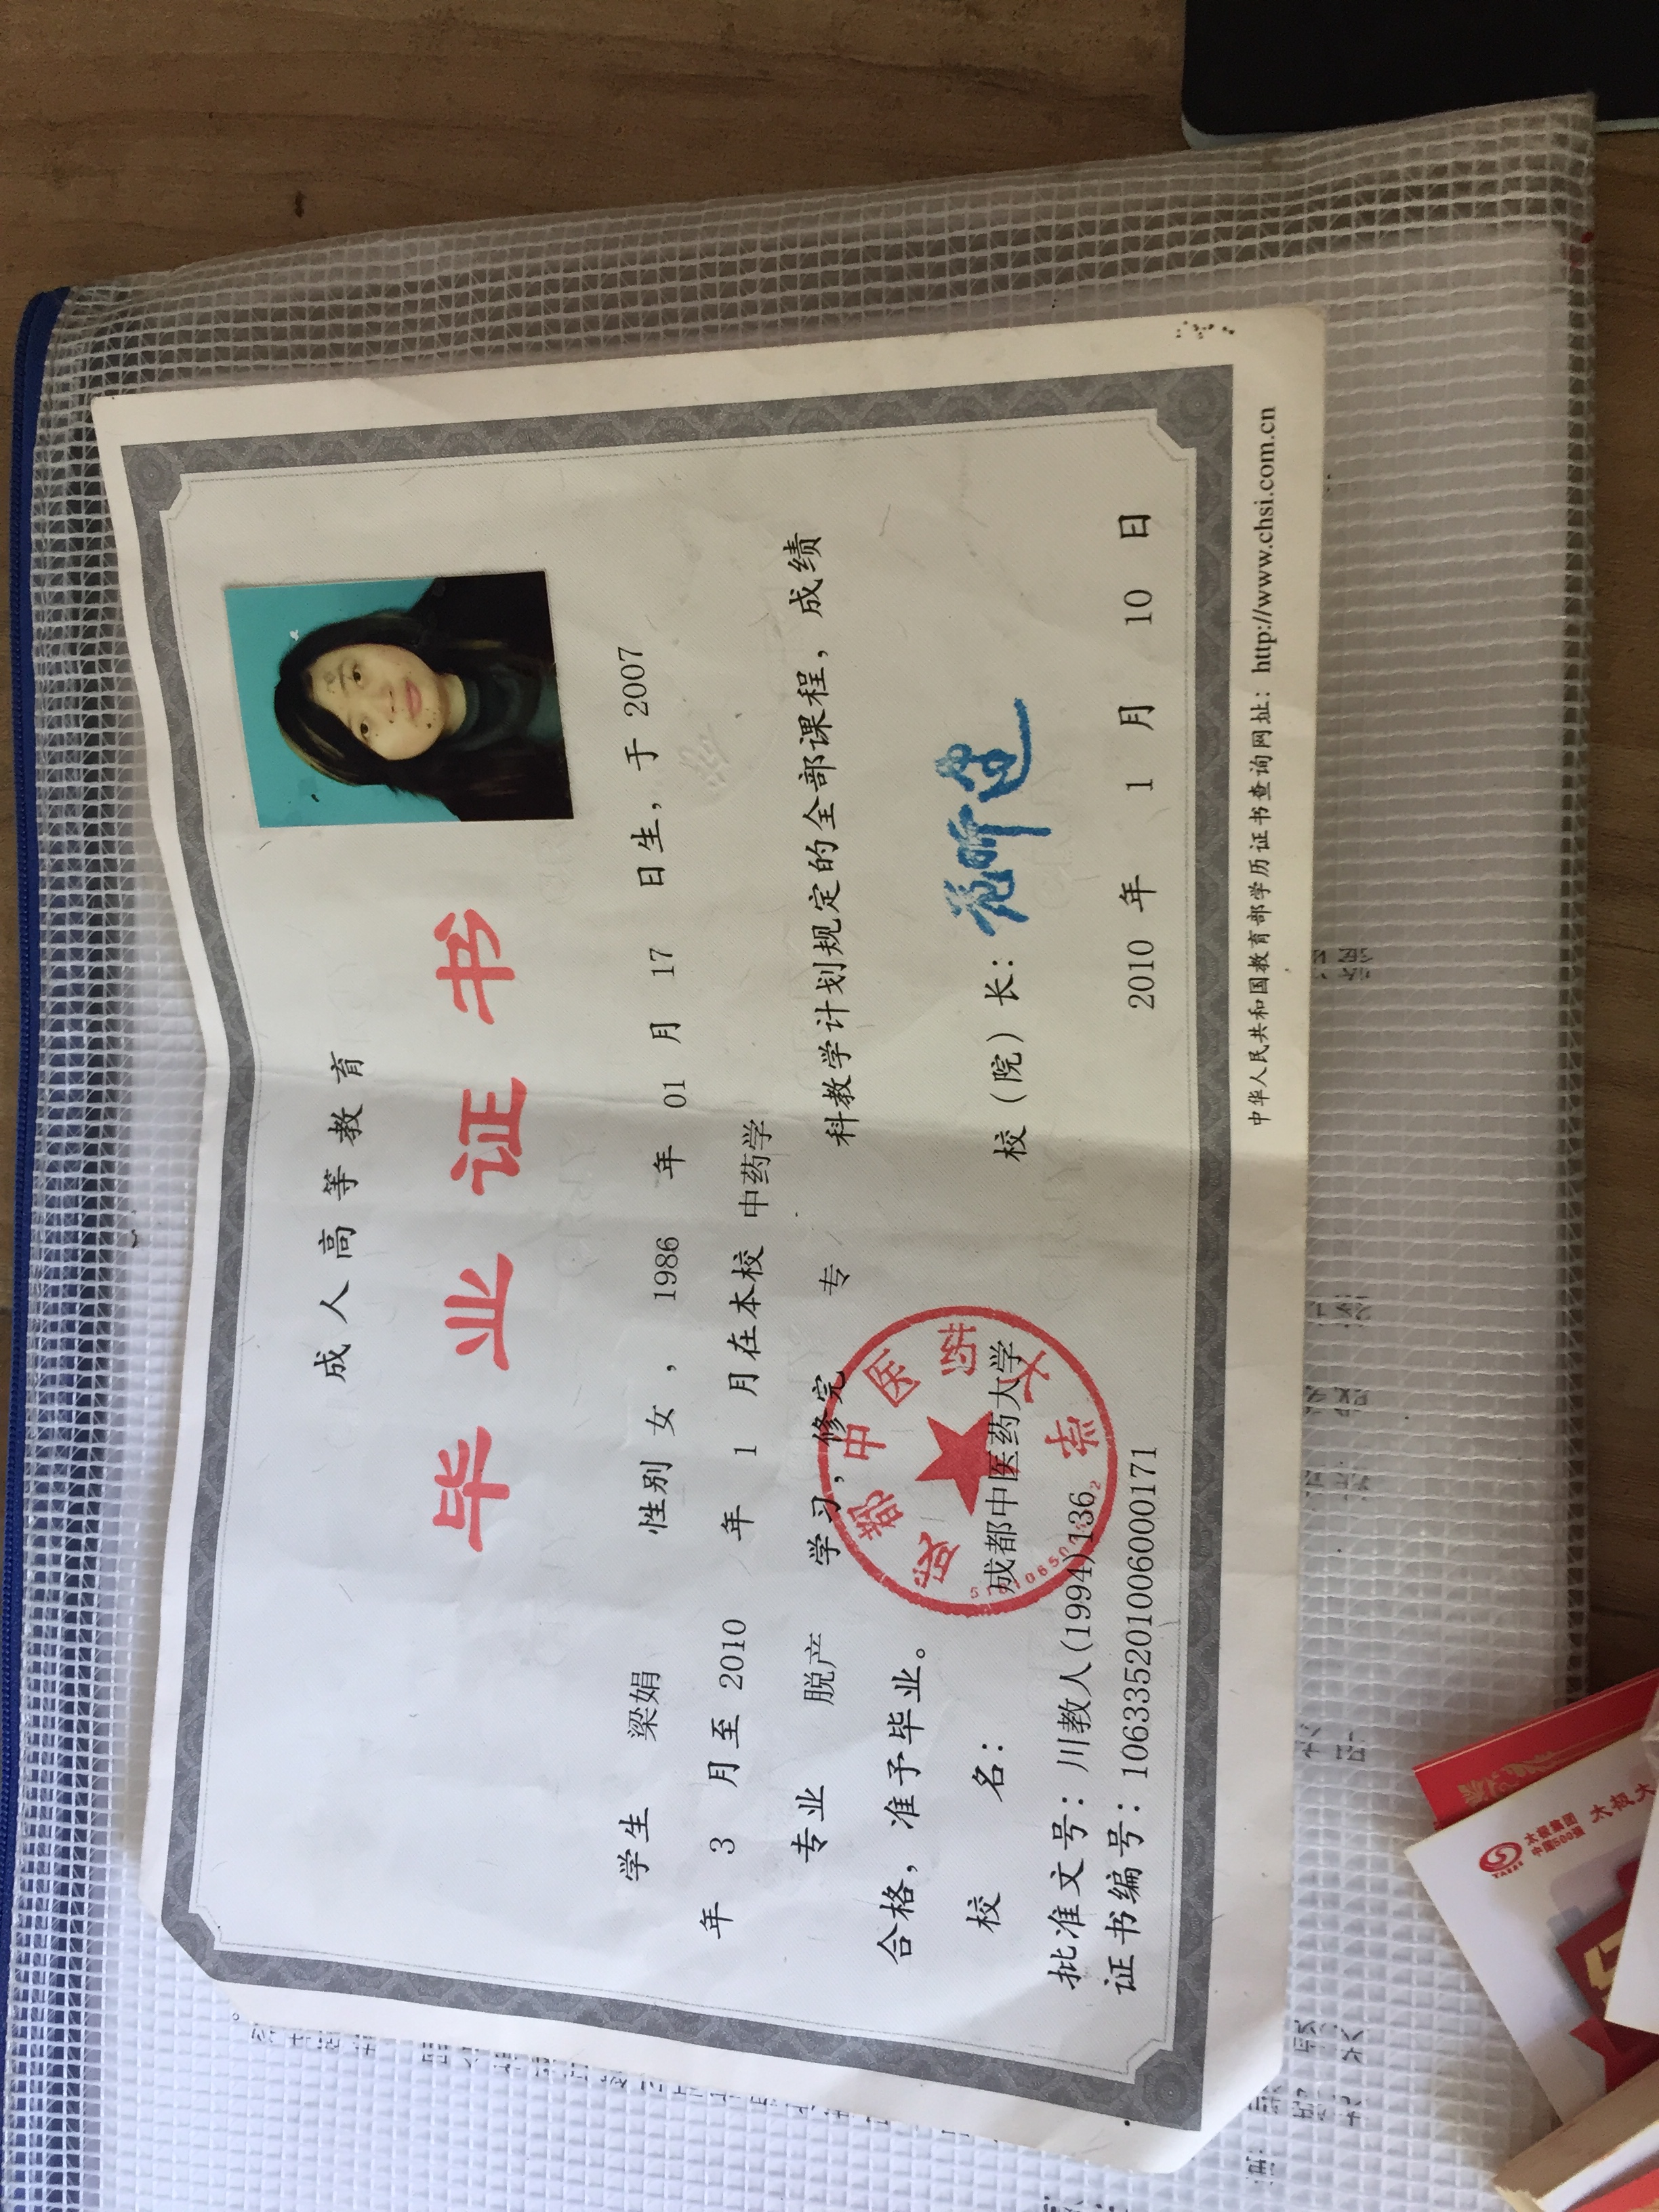 成人高等教育
毕业证书
学生 梁娟 性别 女 ， 1986 年 01 月 17 日生，于 2007
年 3 月至 2010 年 1 月在本校 中药学
专业 脱产 学习，修完 专 科教学计划规定的全部课程，成绩
合格，准予毕业。
校 名： 成都中医药大学 校（院）长：
批准文号：川教人(1994)136
证书编号：106335201006000171 2010 年 1 月 10 日
中华人民共和国教育部学历证书查询网址：http://www.chsi.com.cn
成都中医药大学
太极集团
中国500强
太极大